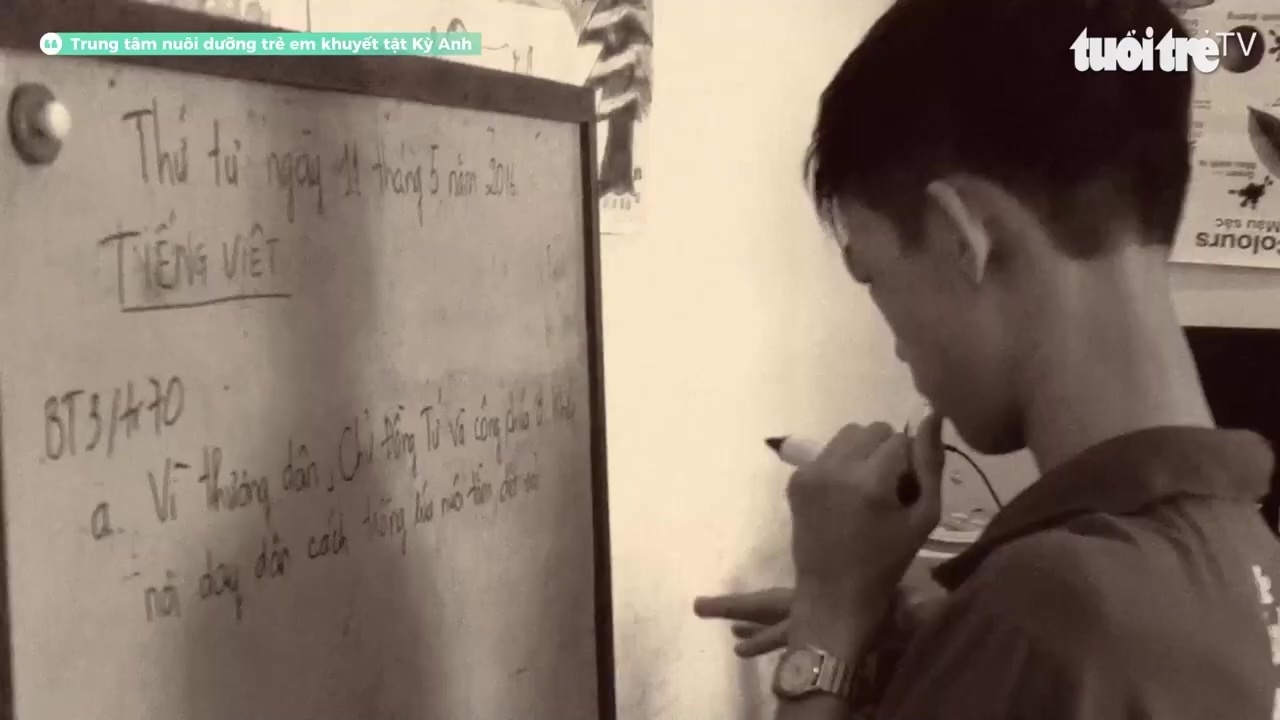 Trung tâm nuôi dưỡng trẻ em khuyết tật Kỳ Anh
tuổi trẻ TV
Thứ tư ngày 11 tháng 5 năm 2016
TIẾNG VIỆT
BT3/tr70
a. Vì thương dân, Chử Đồng Tử và công chúa đi
nơi dạy dân cách trồng lúa nuôi tằm, dệt vải
Màu sắc
Colours